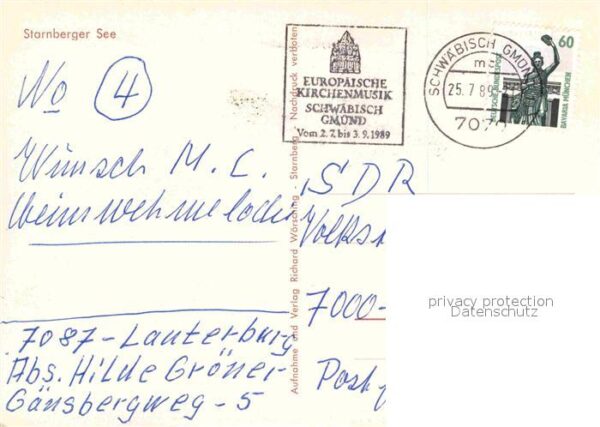 Starnberger See
No 4
Wunsch M. C.
Heimwehmelodie
7087-Lauterburg
Abs. Hilde Gröner
Gänsbergweg - 5
Aufnahme und Verlag Richard Wörsching - Starnberg - Nachdruck verboten
EUROPÄISCHE
KIRCHENMUSIK
SCHWÄBISCH
GMÜND
Vom 2. 7. bis 3. 9. 1989
SCHWÄBISCH GMÜND
25.7.89
7070
60
DEUTSCHE BUNDESPOST
BAVARIA MÜNCHEN
SDR
7000-
privacy protection
Datenschutz